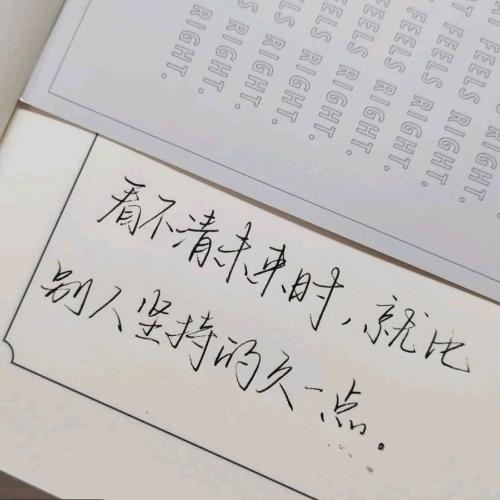 FEELS RIGHT.
FEELS RIGHT.
FEELS RIGHT.
FEELS RIGHT.
RIGHT.
RIGHT.
RIGHT.
RIGHT.
看不清未来时，就比
别人坚持的久一点.